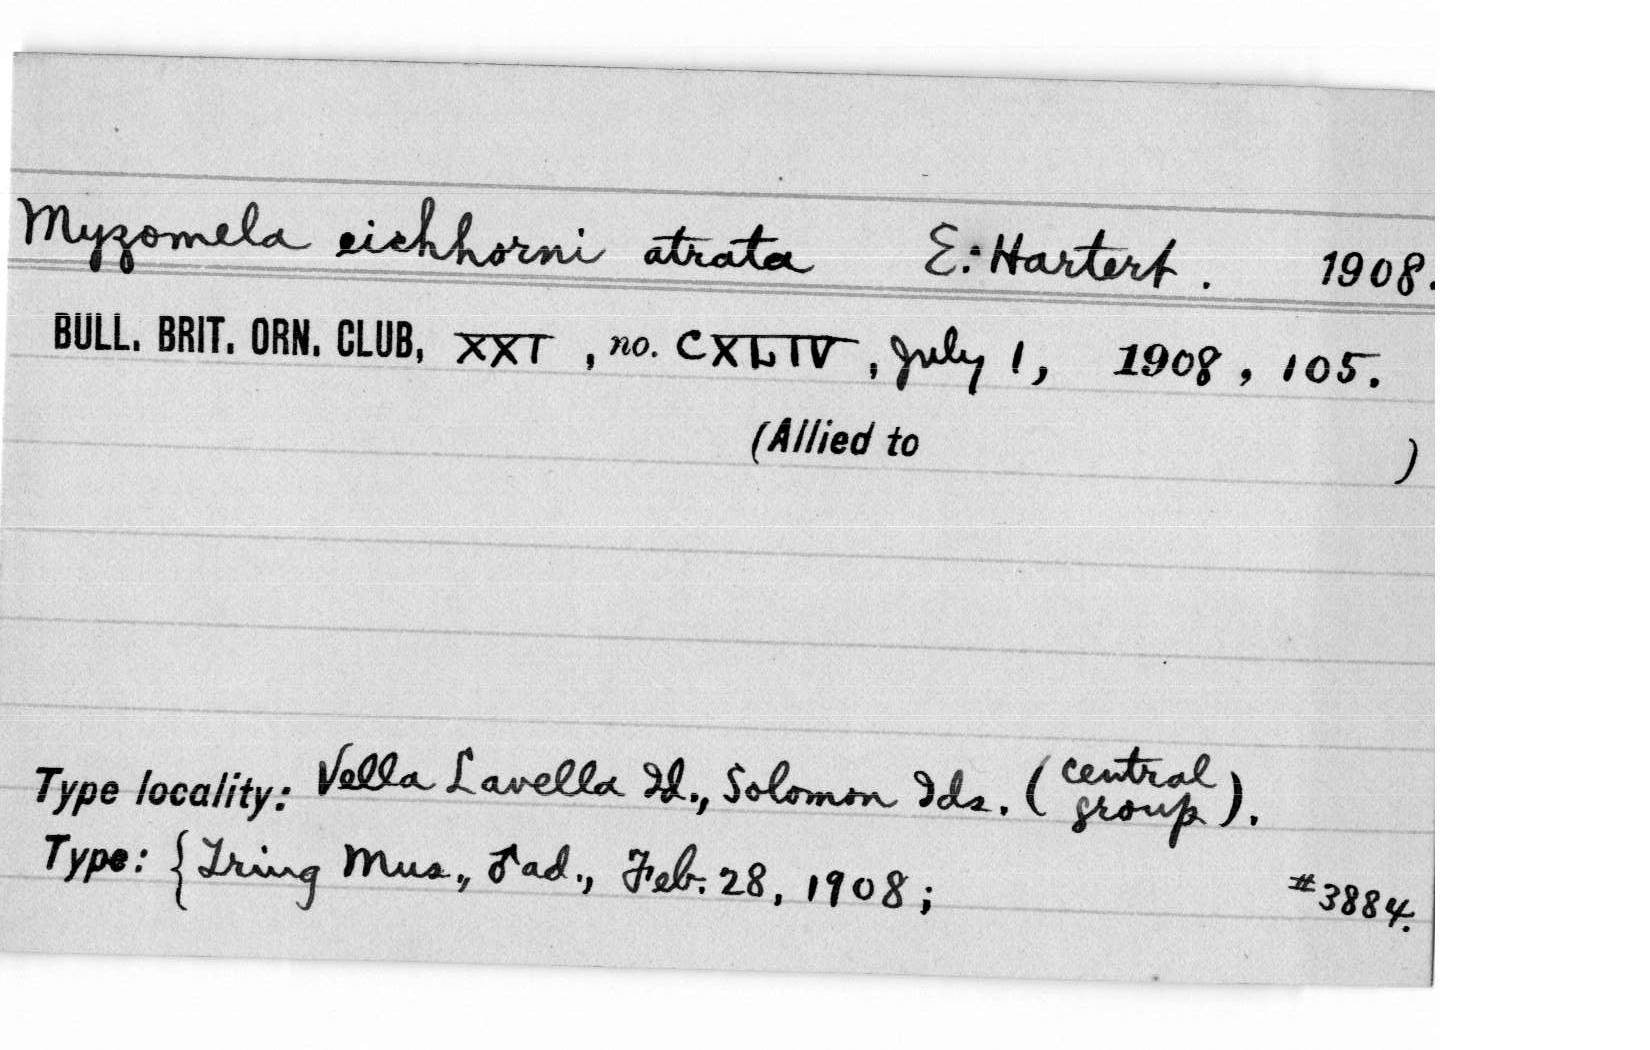 Myzomela eichhorni atrata E. Hartert. 1908.
BULL. BRIT. ORN. CLUB, XXI, no. CXLIV, July 1, 1908, 105.
(Allied to )
Type locality: Vella Lavella Id., Solomon Ids. (central group).
Type: {Tring Mus., ♂ ad., Feb. 28, 1908; #3884.